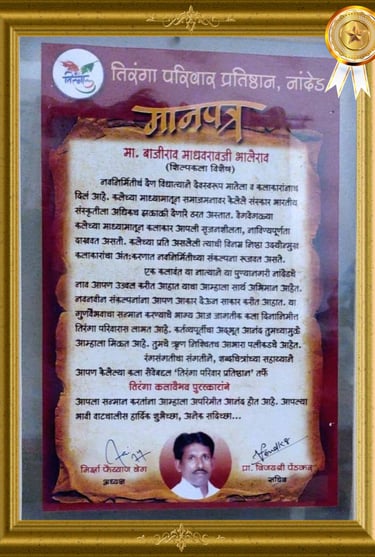 तिरंगा
तिरंगा परिवार प्रतिष्ठान, नांदेड
मानपत्र
मा. बाजीराव माधवरावजी भालेराव
(शिल्पकला विशेष)
नवनिर्मितीचं देण विधात्याने देवस्वरूप मातेला व कलाकारांनाच
दिलं आहे. कलेच्या माध्यमातून समाजमनावर केलेले संस्कार भारतीय
संस्कृतीला अधिकच झळाळी देणारे ठरत असतात. वेगवेगळ्या
कलेच्या माध्यमातून कलाकार आपली सृजनशीलता, नाविण्यपूर्णता
दाखवत असतो. कलेच्या प्रति असलेली त्याची विनम्र निष्ठा उदयोन्मुख
कलाकारांचा अंतःकरणात नवनिर्मितीच्या संकल्पना रूजवत असते.
एक कलावंत या नात्याने या पुण्यानगरी नांदेडचे
नाव आपण उज्वल करीत आहात याचा आम्हाला सार्थ अभिमान आहे.
नवनवीन संकल्पनांना आपण आकार देऊन साकार करीत आहात. या
गुणवैभवाचा सन्मान करण्याचे भाग्य आज जागतीक कला दिनानिमीत्त
तिरंगा परिवारास लाभत आहे. कर्तव्यपूर्तीचा अद्भूत आनंद तुमच्यामुळे
आम्हाला मिळत आहे. तुमचे ऋण निश्चितच आभारा पलीकडचे आहेत.
रंगसंगतीचा संगतीने, शब्दचित्रांच्या सहाय्याने
आपण केलेल्या कला सेवेबद्दल 'तिरंगा परिवार प्रतिष्ठान' तर्फे
तिरंगा कलावैभव पुरस्काराने
आपला सन्मान करतांना आम्हाला अपरिमीत आनंद होत आहे. आपल्या
भावी वाटचालीस हार्दिक शुभेच्छा, अनेक सदिच्छा...
मिर्झा फैय्याण बेग
अध्यक्ष
प्रा. विजयश्री पेंडकर
सचिव